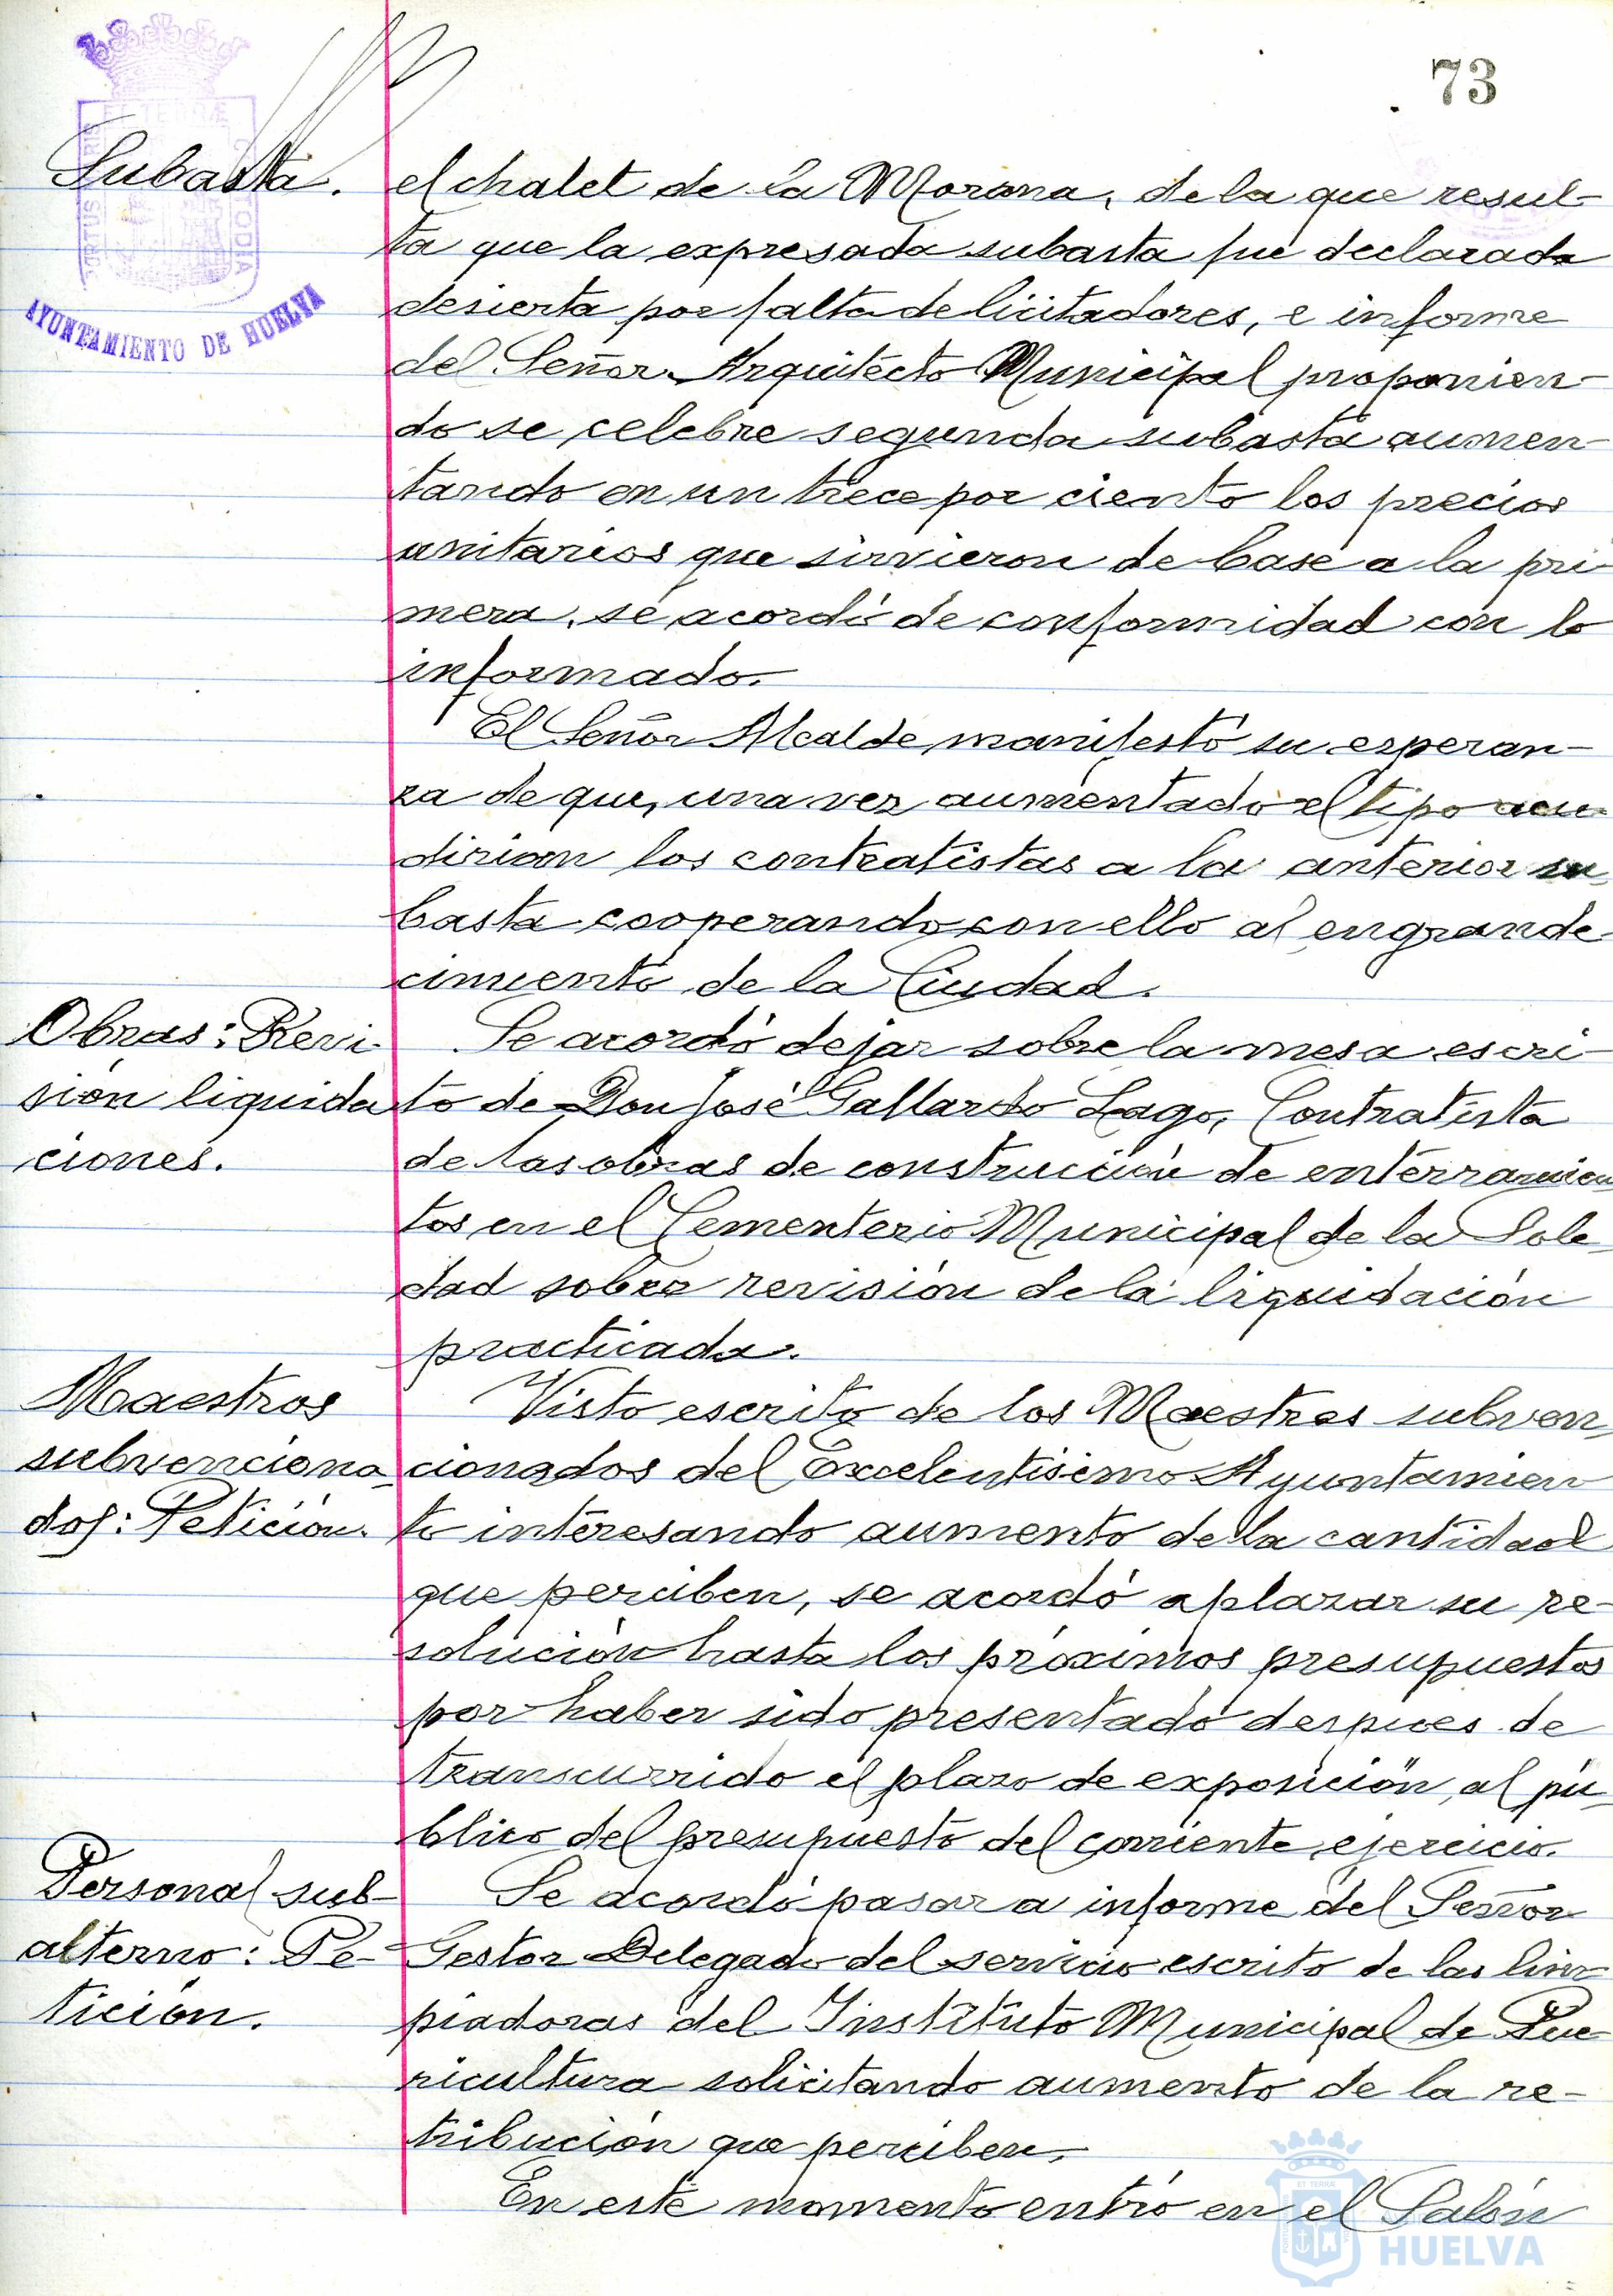 73
Subasta.
AYUNTAMIENTO DE HUELVA
el chalet de la Morana, de la que resul-
ta que la expresada subasta fué declarada
desierta por falta de licitadores, e informe
del Señor Arquitecto Municipal proponien-
do se celebre segunda subasta aumen-
tando en un trece por ciento los precios
unitarios que sirvieron de base a la pri-
mera, se acordó de conformidad con lo
informado.
El Señor Alcalde manifestó su esperan-
za de que, una vez aumentado el tipo acu-
dirian los contratistas a la anterior su-
basta cooperando con ello al engrande-
cimiento de la Ciudad.
Obras: Revi-
sión liquida
ciones.
Se acordó dejar sobre la mesa escri-
to de Don José Gallardo Lago, Contratista
de las obras de construcción de enterramien
tos en el Cementerio Municipal de la Sole-
dad sobre revisión de la liquidación
practicada.
Maestros
subvenciona-
dos: Petición.
Visto escrito de los Maestros subven-
cionados del Excelentísimo Ayuntamien
to interesando aumento de la cantidad
que perciben, se acordó aplazar su re-
solución hasta los próximos presupuestos
por haber sido presentado despues de
transcurrido el plazo de exposición al pú-
blico del presupuesto del corriente ejercicio.
Personal sub-
alterno: Pe-
tición.
Se acordó pasar a informe del Señor
Gestor Delegado del servicio escrito de las lim-
piadoras del Instituto Municipal de Pue-
ricultura solicitando aumento de la re-
tribución que perciben.
En este momento entró en el Salón
HUELVA